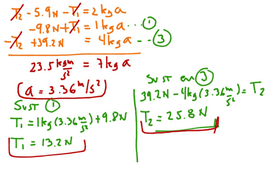 T₂ - 5.9N - T₁ = 2kg a
-9.8N + T₁ = 1kg a ...①
-T₂ + 39.2N = 4kg a ...③
23.5 kgm/s² = 7kg a
a = 3.36 m/s²
Sust ①
T₁ = 1kg(3.36 m/s²) + 9.8N
T₁ = 13.2N
Sust en ③
39.2N - 4kg(3.36 m/s²) = T₂
T₂ = 25.8N